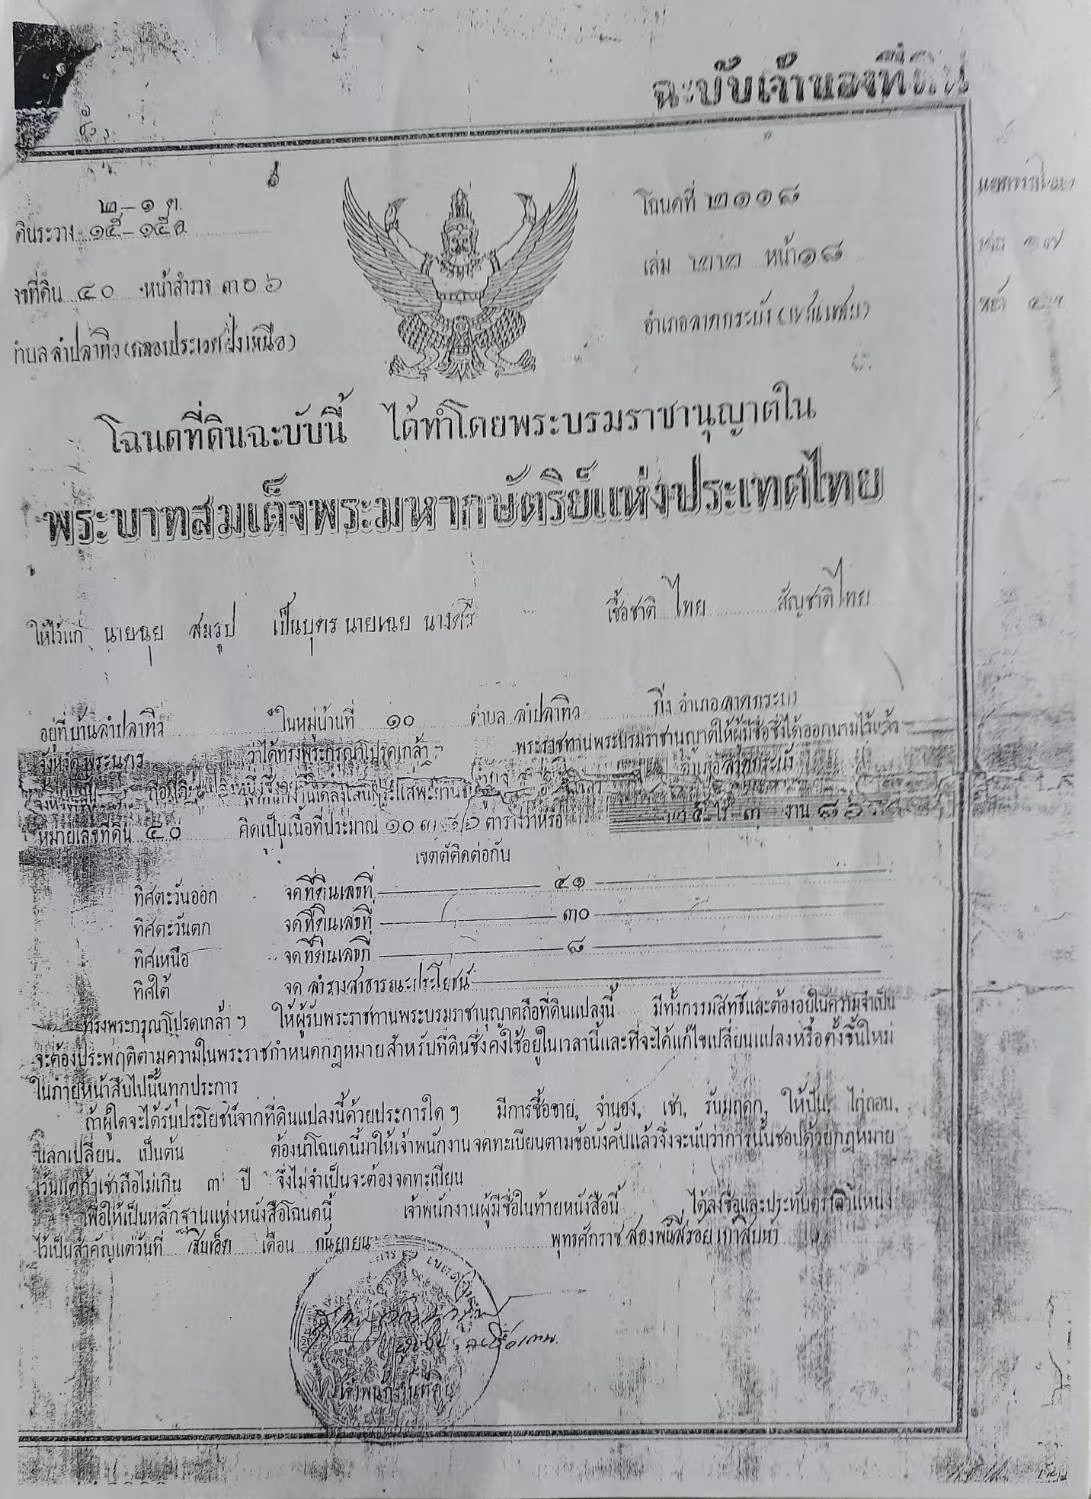 ฉะบับเจ้าของที่ดิน
๒–๑ ต.
ดินระวาง ๑๕–๑๕อ
โฉนดที่ ๒๑๑๘
เล่ม ๒๒ หน้า ๑๘
ขที่ดิน ๔๐ หน้าสำรวจ ๓๐๖
อำเภอลาดกระบัง (แสนแสบ)
ตำบล ลำปลาทิว (คลองประเวศฝั่งเหนือ)
โฉนดที่ดินฉะบับนี้ ได้ทำโดยพระบรมราชานุญาตใน
พระบาทสมเด็จพระมหากษัตริย์แห่งประเทศไทย
ให้ไว้แก่ นายฉุย สมรูป เป็นบุตร นายเฉย นางศรี เชื้อชาติ ไทย สัญชาติ ไทย
อยู่ที่ บ้านลำปลาทิว ในหมู่บ้านที่ ๑๐ ตำบล ลำปลาทิว กิ่งอำเภอลาดกระบัง
จังหวัด พระนคร ว่าได้ทรงพระกรุณาโปรดเกล้า ฯ พระราชทานพระบรมราชานุญาตให้ผู้มีชื่อซึ่งได้ออกนามไว้แล้ว
อำเภอ ลาดกระบัง
หมายเลขที่ดิน ๔๐ คิดเป็นเนื้อที่ประมาณ ตารางวาหรือ ไร่ ๓ งาน ๘๖
เขตต์ติดต่อกับ
ทิศตะวันออก จดที่ดินเลขที่ ๔๑
ทิศตะวันตก จดที่ดินเลขที่ ๓๐
ทิศเหนือ จดที่ดินเลขที่ ๘
ทิศใต้ จด ลำรางสาธารณะประโยชน์
ทรงพระกรุณาโปรดเกล้า ฯ ให้ผู้รับพระราชทานพระบรมราชานุญาตถือที่ดินแปลงนี้ มีทั้งกรรมสิทธิ์และต้องอยู่ในความจำเป็น
จะต้องประพฤติตามความในพระราชกำหนดกฎหมายสำหรับที่ดินซึ่งคงใช้อยู่ในเวลานี้และที่จะได้แก้ไขเปลี่ยนแปลงหรือตั้งขึ้นใหม่
ในภายหน้าสืบไปนั้นทุกประการ
ถ้าผู้ใดจะได้รับประโยชน์จากที่ดินแปลงนี้ด้วยประการใด ๆ มีการซื้อขาย, จำนอง, เช่า, รับมฤดก, ให้ปัน, ไถ่ถอน,
แลกเปลี่ยน, เป็นต้น ต้องนำโฉนดนี้มาให้เจ้าพนักงานจดทะเบียนตามข้อบังคับแล้วจึ่งจะนับว่าการนั้นชอบด้วยกฎหมาย
เว้นแต่ถ้าเช่าถือไม่เกิน ๓ ปี จึ่งไม่จำเป็นจะต้องจดทะเบียน
เพื่อให้เป็นหลักฐานแห่งหนังสือโฉนดนี้ เจ้าพนักงานผู้มีชื่อในท้ายหนังสือนี้ ได้ลงชื่อและประทับตราตำแหน่ง
ไว้เป็นสำคัญแต่วันที่ สิบเอ็ด เดือน กันยายน พุทธศักราช สองพันสี่ร้อยเก้าสิบห้า
เจ้าพนักงานที่ดิน